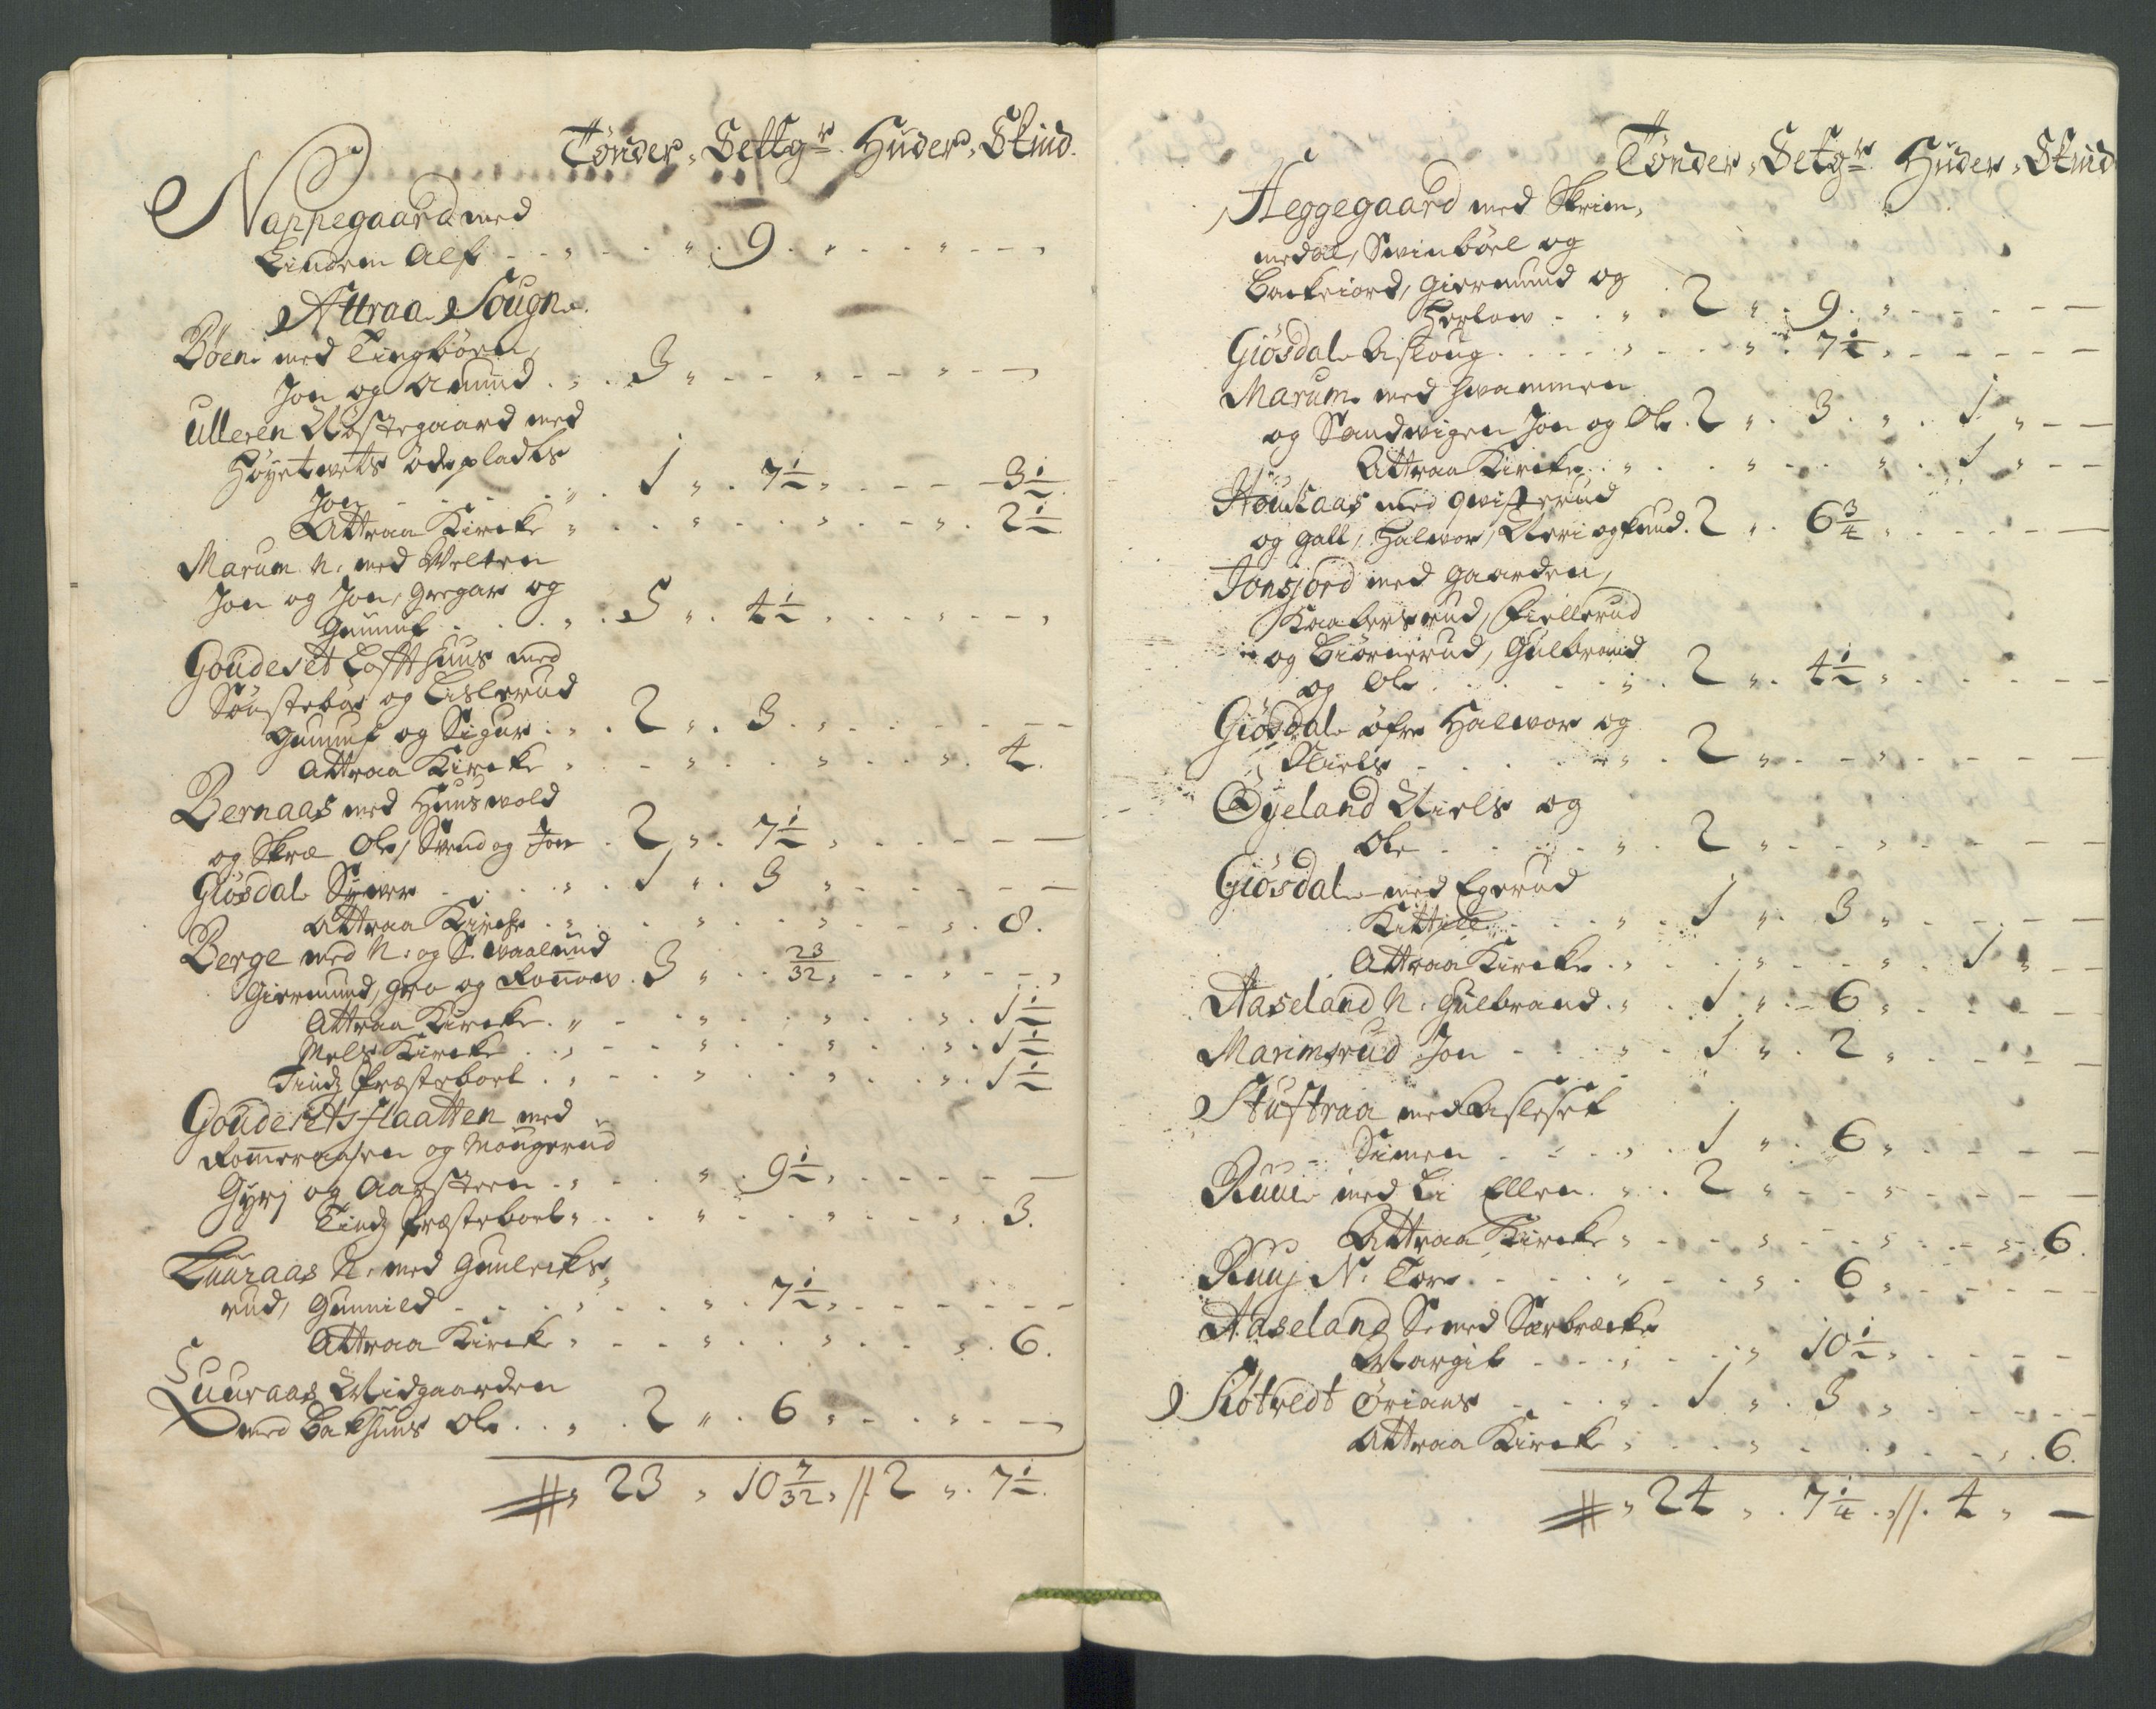 Tønder, Settgr. Huder, Skind.
Nappegaard med
Lindem Alf - - " - " 9 " - - " - -
Attraa Sougn.
Böen med Tingbören,
Jon og Amund . " . 3 " - - " - - " - -
Ulleren Nostegaard med
Høyetvets ödepladts
Jon - - - " . 1 " . 7½ " - - - 3½
Attraa Kircke " - - " - - " - - " . 2½
Marum N. med Velten
Jon og Jon, Gregar og
Gunnuf - - " . 5 " . 4½ " - - " - -
Goudeset Loffthuus med
Sönstebøe og Lislerud
Gunnuf og Sigur . " . 2 " . 3 " - - - -
Attraa Kircke " - - " - - " - - " . 4.
Bernaas med Huusvold
og Skræ Ole, Svend og Jon . 2 " . 7½ " - - - -
Giösdal Syver - - " . 1 " . 3 " - - - -
Attraa Kircke . " - - " - - " - - " . 8.
Berge med N. og S. Waalund
Giermund, Gro og Ronnow . 3 " - - 23/32 " - - " - -
Attraa Kircke . " - - " - - " - - " . 1½
Mels Kircke . " - - " - - " - - " . 1½
Tindz Præsteboel . " - - " - - " - - " . 1½
Goudesetsflaatten med
Rommeraasen og Mougerud
Gyrj og Aarsteen . " - - " . 9½ " - - - -
Tindz Præsteboel " - - " - - " - - " . 3.
Luuraas N. med Gunleiks,
rud, Gunnild - - " - - " . 7½ " - - - -
Attraa Kircke " - - " - - " - - " . 6.
Luuraas Midgaarden
med Bakhuus Ole . " . 2 " . 6 " - - " - -
" 23 " 10 7/32 " // 2 " . 7½.
Tönder, Setgr. Huder, Skind
Heggegaard med Skrim,
medal, Svinböel og
Backejord, Giermund og
Herlow - - " . 2 " . 9 . " - - - -
Giösdal Asloug - - " - - " . 7½ " - - - -
Marum med Hvammen
og Sandvigen Jon og Ole . 2 " . 3 . " . 1 " - -
Attraa Kircke . " - - " - - " . 1 " - -
Houkaas med Qvisterud
og Gall, Halvor, Neri og Knud . 2 " . 6¾ " - - - -
Jonsjord med Gaarden,
Kaabersrud, Fiellerud
og Biörnerud, Gulbrand
og Ole - - " . 2 " . 4½ " - - - -
Giösdal öfre Halvor og
Niels - - " . 2 " - - " - - - -
Öyeland Niels og
Ole - - " . 2 " - - " - - - -
Giösdal med Egerud
Kittill - - " . 1 " . 3 " - - - -
Attraa Kircke . " - - " - - " . 1 " - -
Aaseland N. Gulbrand . " . 1 " . 6 " - - - -
Marimsrud Jon - - " . 1 " . 2 " - - - -
Stuftraa med Asleset
Simen - - " . 1 " . 6 " - - - -
Ruui med Li Ellen . " . 2 " - - " - - - -
Attraa Kircke " - - " - - " - - " . 6.
Ruuj N. Tore - - " - - " . 6 " - - - -
Aaseland S. med Sørbræcke
Margit - - " - - " 10½ " - - - -
Kotvedt Örians - - " . 1 " . 3 " - - - -
Attraa Kircke " - - " - - " - - " . 6.
" 24 " . 7¼ . // . 4 " —